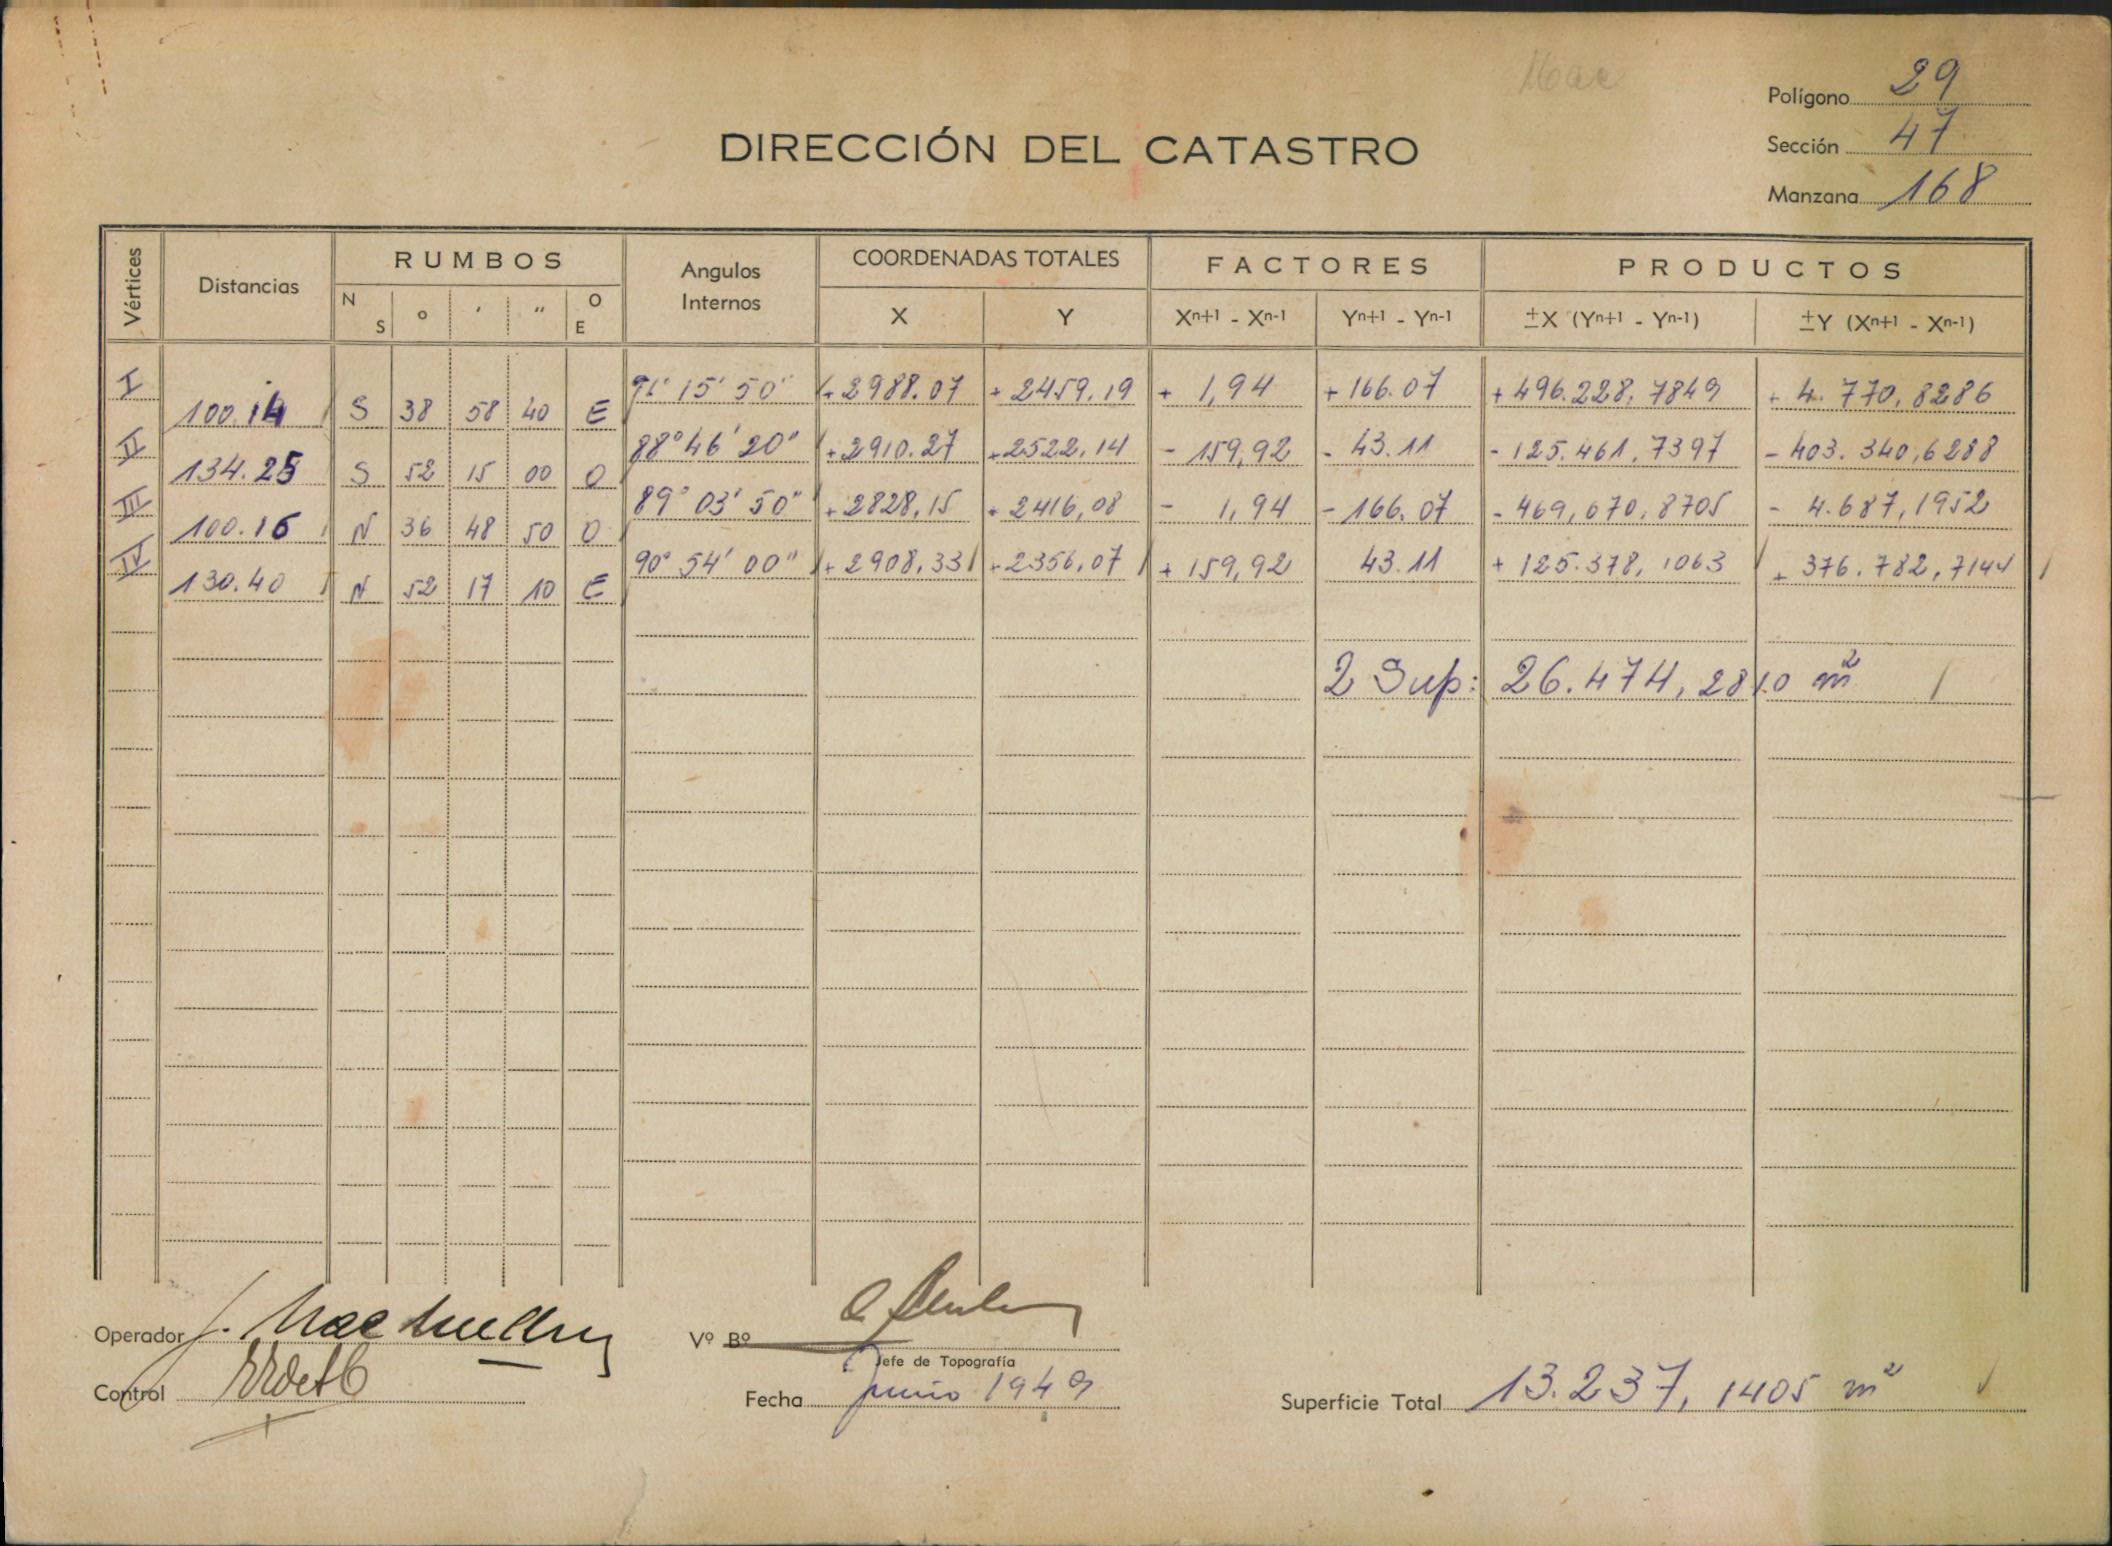 Polígono 29
DIRECCIÓN DEL CATASTRO
Sección 47
Manzana 168
Vértices Distancias RUMBOS Angulos Internos COORDENADAS TOTALES FACTORES PRODUCTOS
N S ° ′ ″ O E X Y Xn+1 - Xn-1 Yn+1 - Yn-1 ±X (Yn+1 - Yn-1) ±Y (Xn+1 - Xn-1)
I 91° 15' 50" +2988.07 +2459,19 + 1,94 +166.07 +496.228,7849 + 4.770,8286
100.14 S 38 58 40 E
II 88°46'20" +2910.27 +2522,14 - 159,92 - 43.11 -125.461,7397 -403.340,6288
134.25 S 52 15 00 O
III 89° 03' 50" +2828,15 +2416,08 - 1,94 -166.07 -469,670,8705 - 4.687,1952
100.16 N 36 48 50 O
IV 90° 54' 00" +2908,33 +2356,07 +159,92 43.11 + 125.378,1063 + 376.782,7144
130.40 N 52 17 10 E
2 Sup: 26.474,2810 m²
Operador
Vº Bº
Jefe de Topografía
Control
Fecha Junio 1949
Superficie Total 13.237,1405 m²